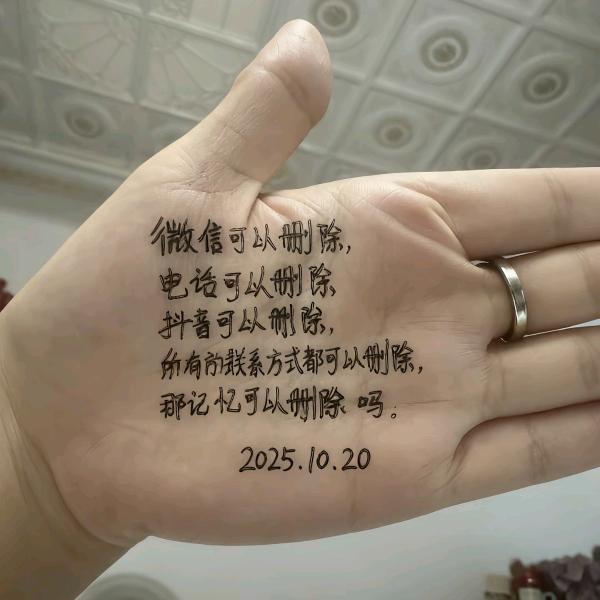 微信可以删除,
电话可以删除
抖音可以删除,
所有的联系方式都可以删除,
那记忆可以删除吗。
2025.10.20